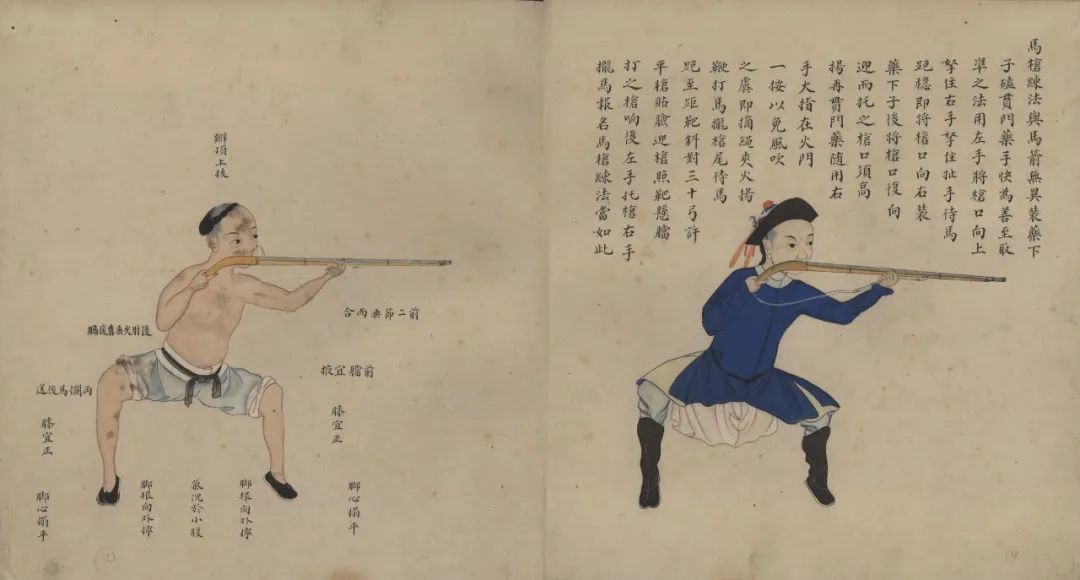 馬槍練法與馬箭無異裝藥下
子磕貫門藥手快為善至取
準之法用左手將槍口向上
拏住右手拏住扯手待馬
跑穩即將槍口向右裝
藥下子後將槍口復向
迎而托之槍口須高
揚再貫門藥隨用右
手大指在火門
一按以免風吹
之虞即摘繩夾火揚
鞭打馬攏槍尾待馬
跑至距靶斜對三十弓許
平槍貼臉迎槍照靶懸臑
打之槍响後左手托槍右手
攏馬報名馬槍練法當如此
9
辮頂上拔
前二節垂而合
前臑宜掖
馬後送
膝宜正
膝宜正
脚心搨平
脚根向外擰
氣沉於小腹
脚根向外擰
脚心搨平
10